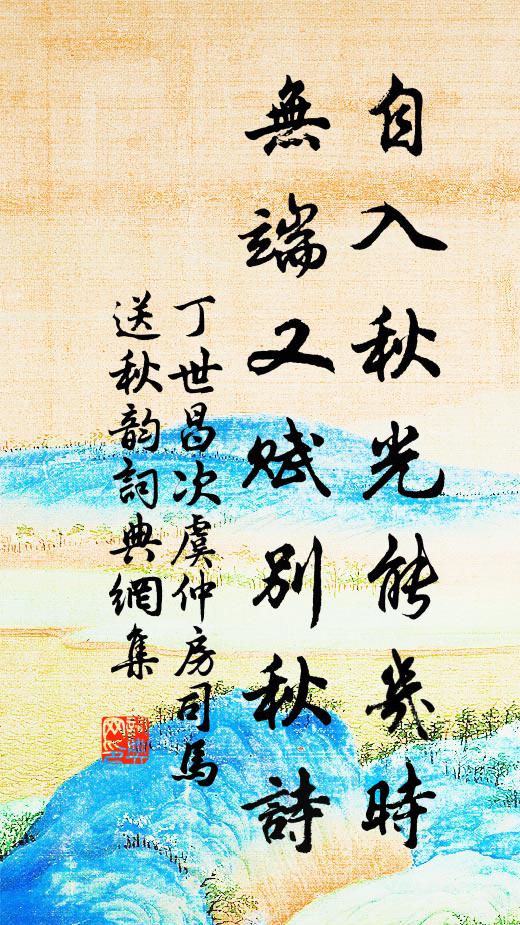 自入秋光能幾時
無端又賦別秋詩
丁世昌次虞仲房司馬
送秋韵詞典網集